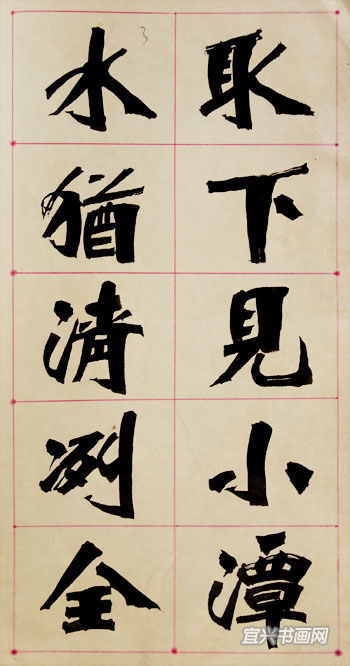 取下見小潭
水猶清冽全
宜兴书画网